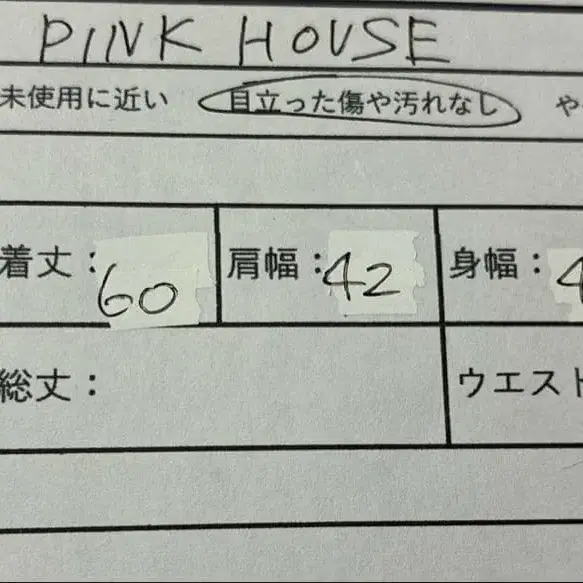 PINK HOUSE
未使用に近い 目立った傷や汚れなし や
着丈: 60 肩幅: 42 身幅: 4
総丈: ウエスト